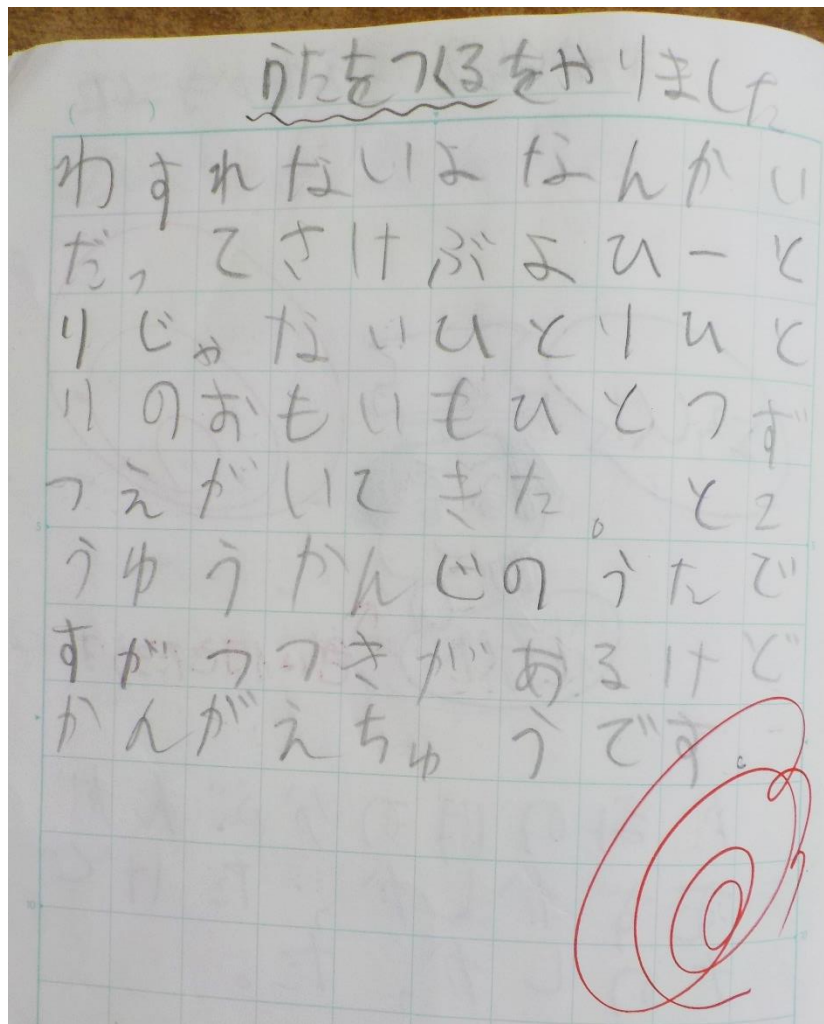 うたをつくるをやりました
わすれないよなんかい
だってさけぶよひーと
りじゃないひとりひと
りのおもいもひとつず
つえがいてきた。とこ
うゆうかんじのうたで
すがつつきがあるけど
かんがえちゅうです。